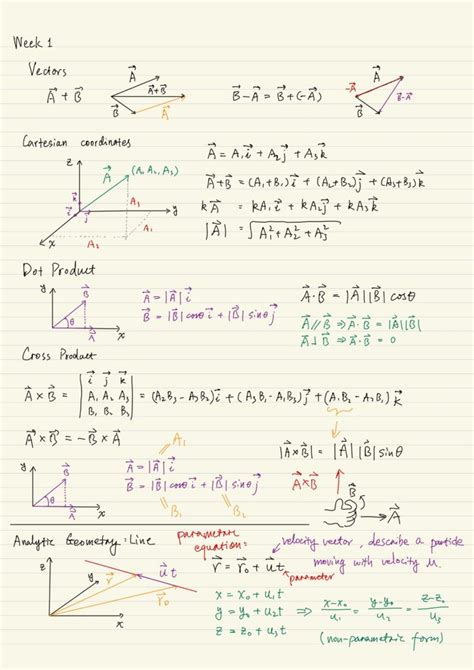 Week 1
Vectors
A⃗ + B⃗
A⃗
A⃗+B⃗
B⃗
A⃗
B⃗ − A⃗ = B⃗ + (−A⃗)
−A⃗
A⃗
B⃗
B⃗−A⃗
Cartesian coordinates
z
A⃗
(A₁ A₂, A₃)
k⃗
i⃗
j⃗
y
x
A₃
A₁
A₂
A⃗ = A₁i⃗ + A₂j⃗ + A₃k⃗
A⃗+B⃗ = (A₁+B₁)i⃗ + (A₂+B₂)j⃗ + (A₃+B₃)k⃗
kA⃗ = kA₁i⃗ + kA₂j⃗ + kA₃k⃗
|A⃗| = √(A₁² + A₂² + A₃²)
Dot Product
y
B⃗
θ
A⃗
x
A⃗ = |A⃗| i⃗
B⃗ = |B⃗| cosθ i⃗ + |B⃗| sinθ j⃗
A⃗·B⃗ = |A⃗||B⃗| cosθ
A⃗∥B⃗ ⇒ A⃗·B⃗ = |A⃗||B⃗|
A⃗⊥B⃗ ⇒ A⃗·B⃗ = 0
Cross Product
A⃗ × B⃗ = | i⃗ j⃗ k⃗ | = (A₂B₃ − A₃B₂)i⃗ + (A₃B₁ − A₁B₃)j⃗ + (A₁B₂ − A₂B₁)k⃗
A₁ A₂ A₃
B₁ B₂ B₃
A⃗ × B⃗ = −B⃗ × A⃗
|A⃗×B⃗| = |A⃗||B⃗| sinθ
y
B⃗
θ
A⃗
x
A₁
A⃗ = |A⃗| i⃗
B⃗ = |B⃗| cosθ i⃗ + |B⃗| sinθ j⃗
B₁
B₂
A⃗×B⃗
B⃗
A⃗
Analytic Geometry: Line
parametric
equation:
velocity vector, describe a particle
moving with velocity u.
r⃗ = r⃗₀ + u⃗t
parameter
z
y
x
r⃗
u⃗t
r⃗₀
x = x₀ + u₁t
y = y₀ + u₂t ⇒ (x−x₀)/u₁ = (y−y₀)/u₂ = (z−z₀)/u₃
z = z₀ + u₃t
(non-parametric form)